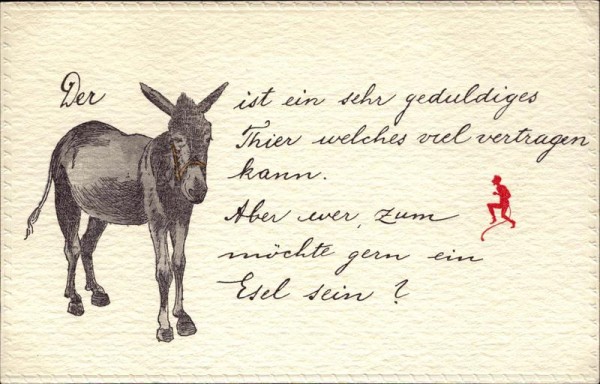 Der ist ein sehr geduldiges
Thier welches viel vertragen
kann.
Aber wer, zum
möchte gern ein
Esel sein ?